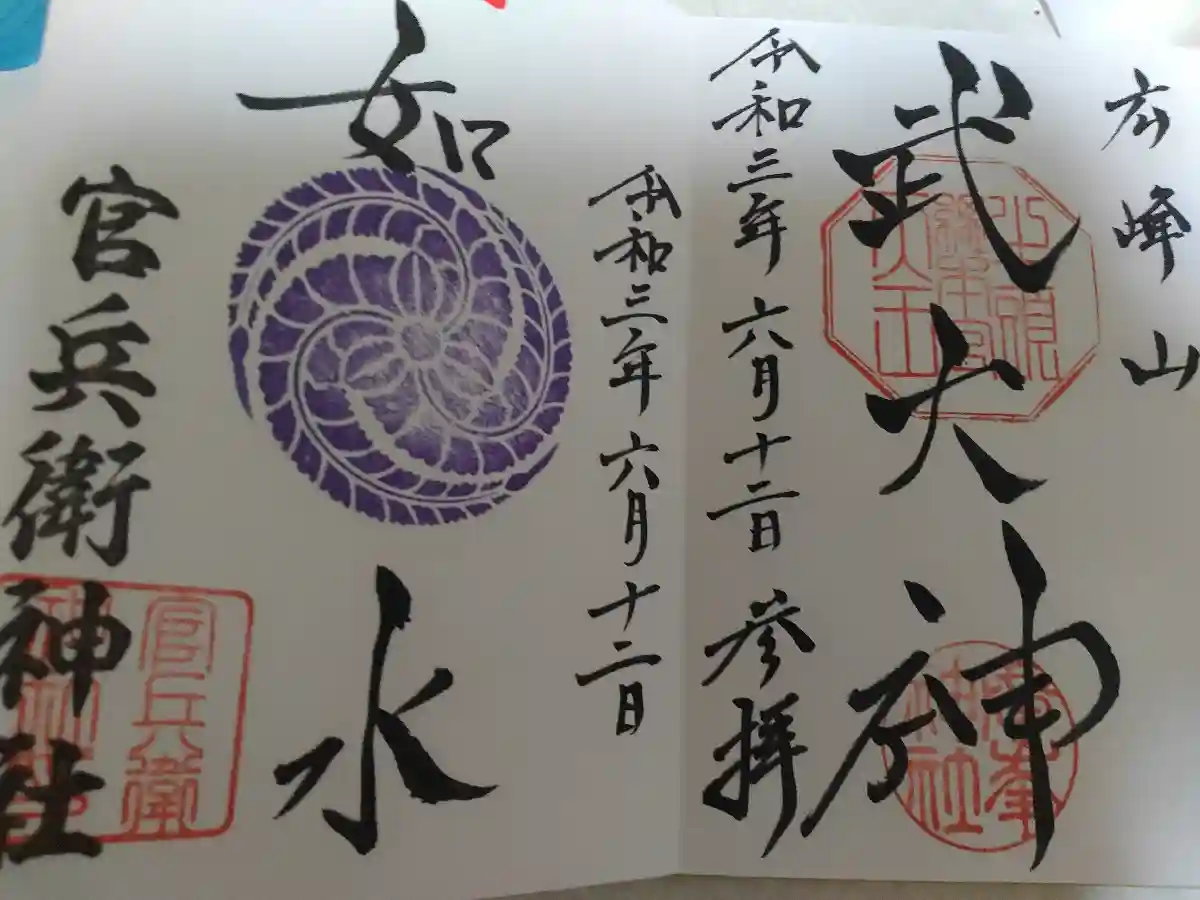 広峰山
武大神
廣峯
神社
令和三年六月十二日 参拝
令和三年六月十二日
如水
官兵衛神社
官兵衛